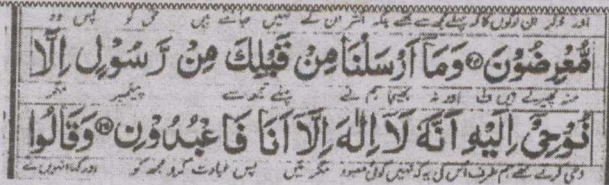 اور ذکر ان لوگوں کا کہ پہلے مجھ سے تھے بلکہ اکثر ان کے نہیں جانتے ہیں حق کو پس وہ
مُّعْرِضُوْنَ۝ وَمَاۤ اَرْسَلْنَا مِنْ قَبْلِكَ مِنْ رَّسُوْلٍ اِلَّا
منہ پھیرتے ہیں اور نہ بھیجا ہم نے پہلے تجھ سے پیغمبر مگر
نُوْحِيْۤ اِلَيْهِ اَنَّهٗ لَاۤ اِلٰهَ اِلَّاۤ اَنَا فَاعْبُدُوْنِ۝ وَقَالُوا
وحی کرتے تھے ہم طرف اس کی یہ کہ نہیں کوئی معبود مگر میں پس عبادت کرو مجھ کو اور کہا انہوں نے